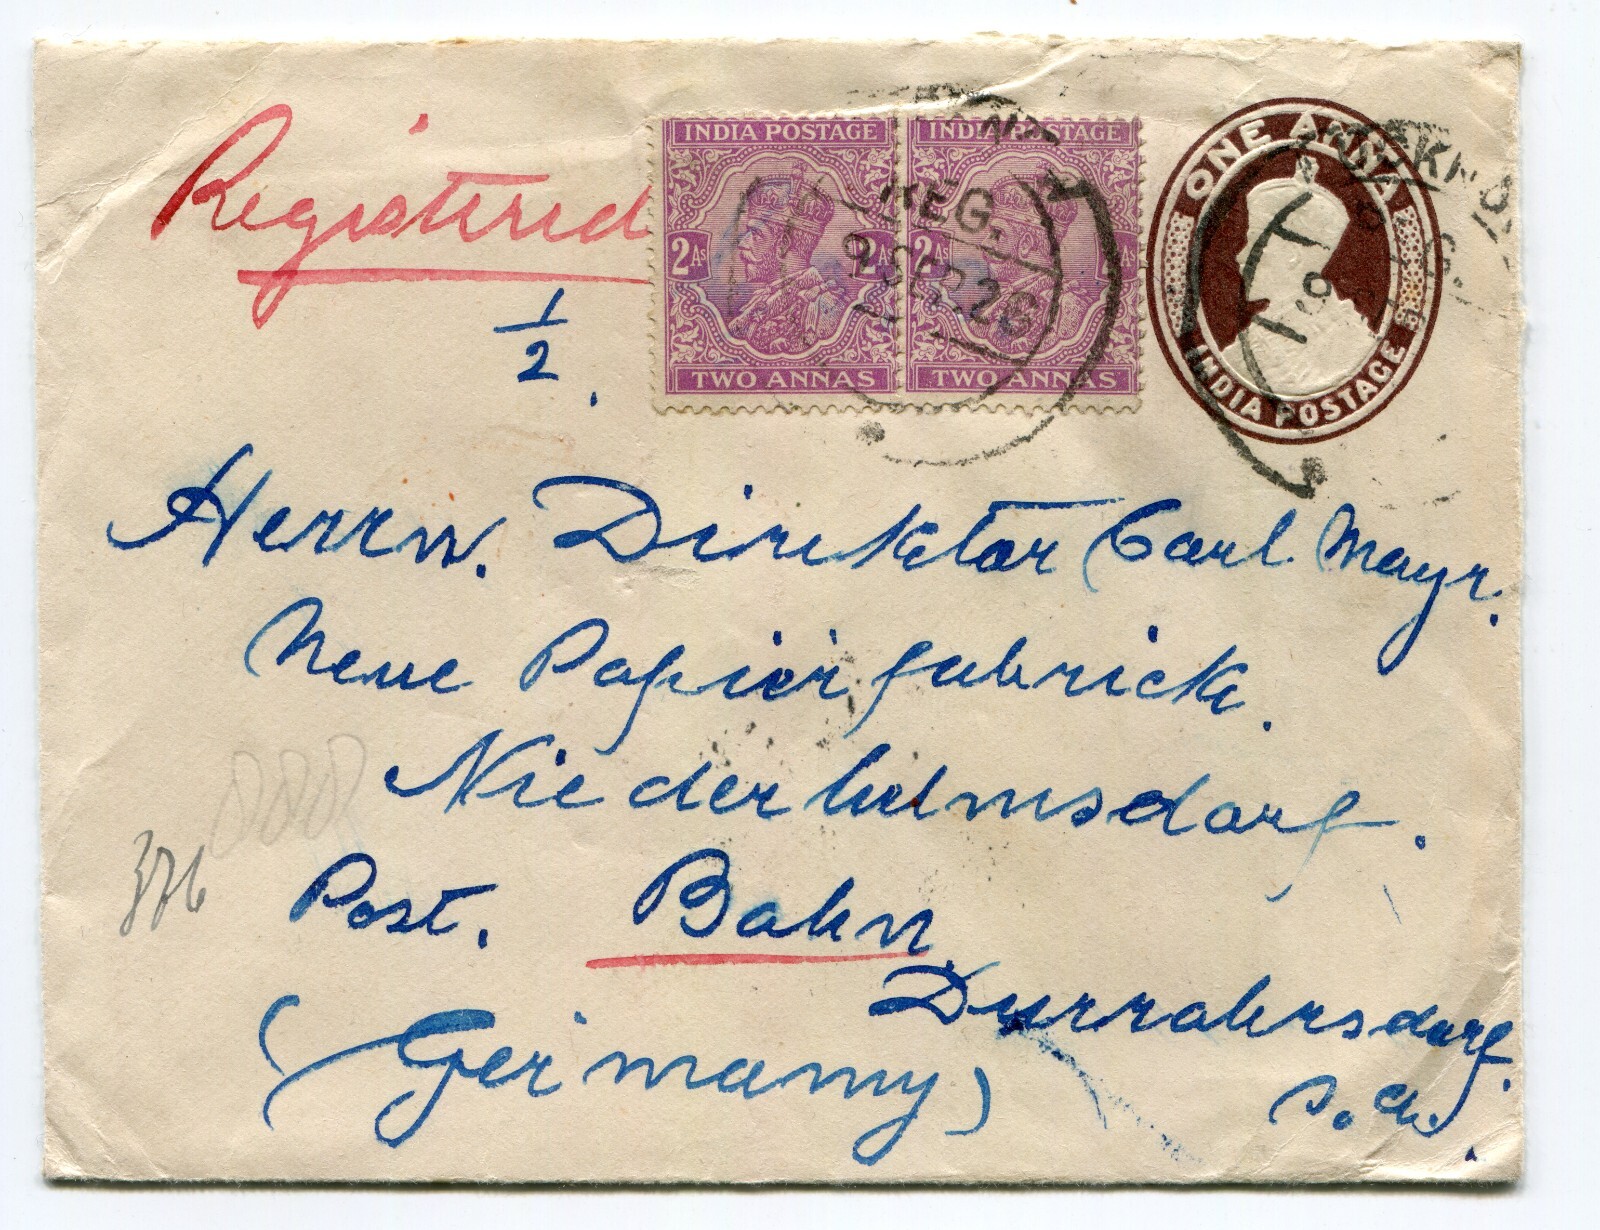 Registered
1/2.
INDIA POSTAGE
2 As 2 As
TWO ANNAS
INDIA POSTAGE
2 As 2 As
TWO ANNAS
REG.
9 SEP. 26
ONE ANNA
INDIA POSTAGE
Herrn. Direktor Carl Mayr.
Neue Papierfabrick.
Nieder
Post. Bahn
Durrahrsdorf.
(Germany) S.a.
326